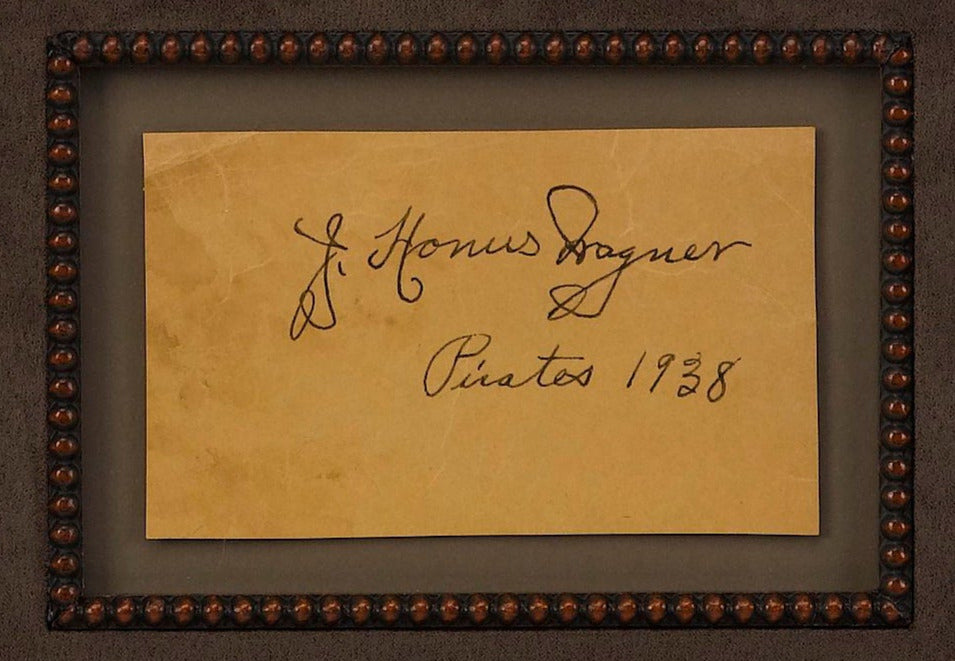 J. Honus Wagner
Pirates 1938